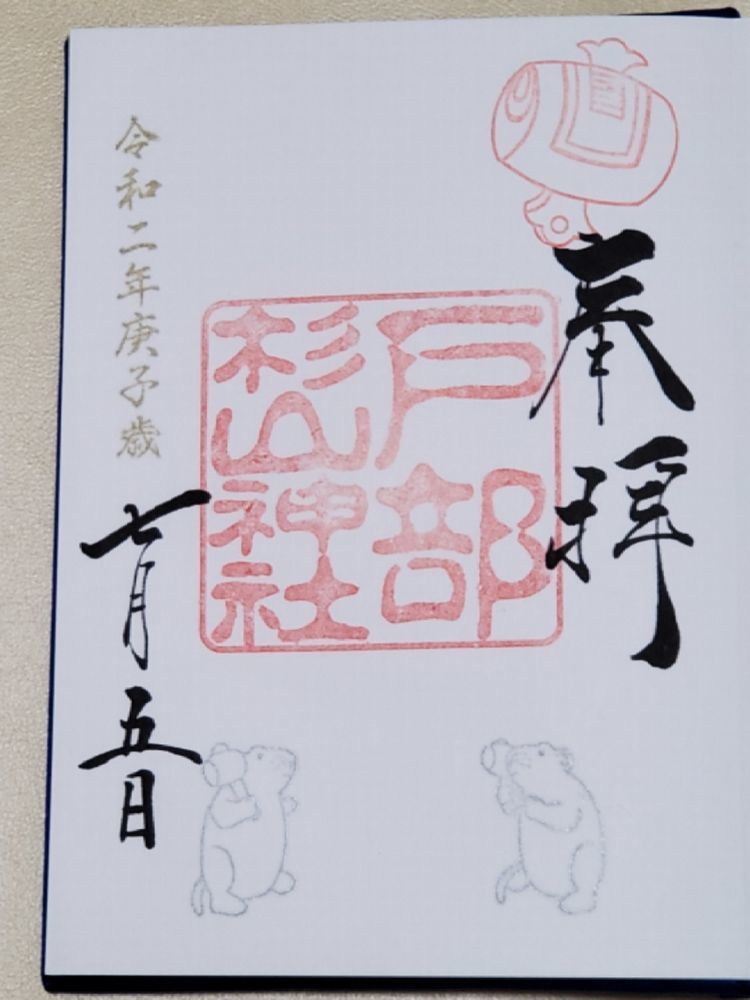 奉拝
戸部
杉山神社
令和二年庚子歳
七月五日